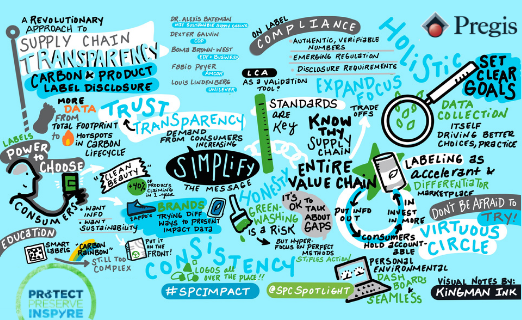 A REVOLUTIONARY
APPROACH TO
SUPPLY CHAIN
TRANSPARENCY
CARBON & PRODUCT
LABEL DISCLOSURE
DR. ALEXIS BATEMAN
DEXTER GALVIN
CDP
FABIO PEYER
AMCOR
LOUIS LINDENBERG
UNILEVER
ON LABEL
COMPLIANCE
AUTHENTIC, VERIFIABLE
NUMBERS
EMERGING REGULATION
DISCLOSURE REQUIREMENTS
LCA
AS A VALIDATION
TOOL?
Pregis
HOLISTIC
EXPAND
FOCUS
TRADE
OFFS
SET
CLEAR
GOALS
DATA
COLLECTION
ITSELF
DRIVING BETTER
CHOICES, PRACTICE
MORE
DATA
FROM
TOTAL FOOTPRINT
TO HOTSPOTS
IN CARBON
LIFECYCLE
TRUST
TRANSPARENCY
DEMAND
FROM CONSUMERS
INCREASING
STANDARDS
ARE
KEY
KNOW
THY
SUPPLY
CHAIN
ENTIRE
VALUE CHAIN
LABELS
POWER
TO
CHOOSE
CONSUMERS
I WANT
INFO
I WANT
SUSTAINABILITY
"CLEAN
BEAUTY"
+40%
PRODUCTS
CLAIMING
IN 1-YEAR
SIMPLIFY
THE MESSAGE
ZAPPOS
BRANDS
TRYING DIFF
WAYS TO PRESENT
IMPACT DATA
HONESTY
GREEN-
WASHING
IS A RISK
IT'S
OK TO
TALK
ABOUT
GAPS
BUT HYPER-
FOCUS ON PERFECT
METHODS
STIFLES ACTION
LABELING AS
ACCELERANT &
DIFFERENTIATOR
MARKETPLACE
PUT INFO
OUT
IN
INVEST
IN MORE
CONSUMERS
HOLD ACCOUNT-
ABLE
DON'T BE AFRAID TO
TRY!
VIRTUOUS
CIRCLE
EDUCATION
SMART
LABELS
"CARBON
RAINBOW"
STILL TOO
COMPLEX
PUT IT
IN THE
FRONT!
CONSISTENCY
LOGOS ALL
OVER THE PLACE!!
PERSONAL
ENVIRONMENTAL
DASH
BOARDS
SEAMLESS
PROTECT
PRESERVE
INSPYRE
#SPCIMPACT
@SPCSPOTLIGHT
VISUAL NOTES BY:
KINGMAN INK